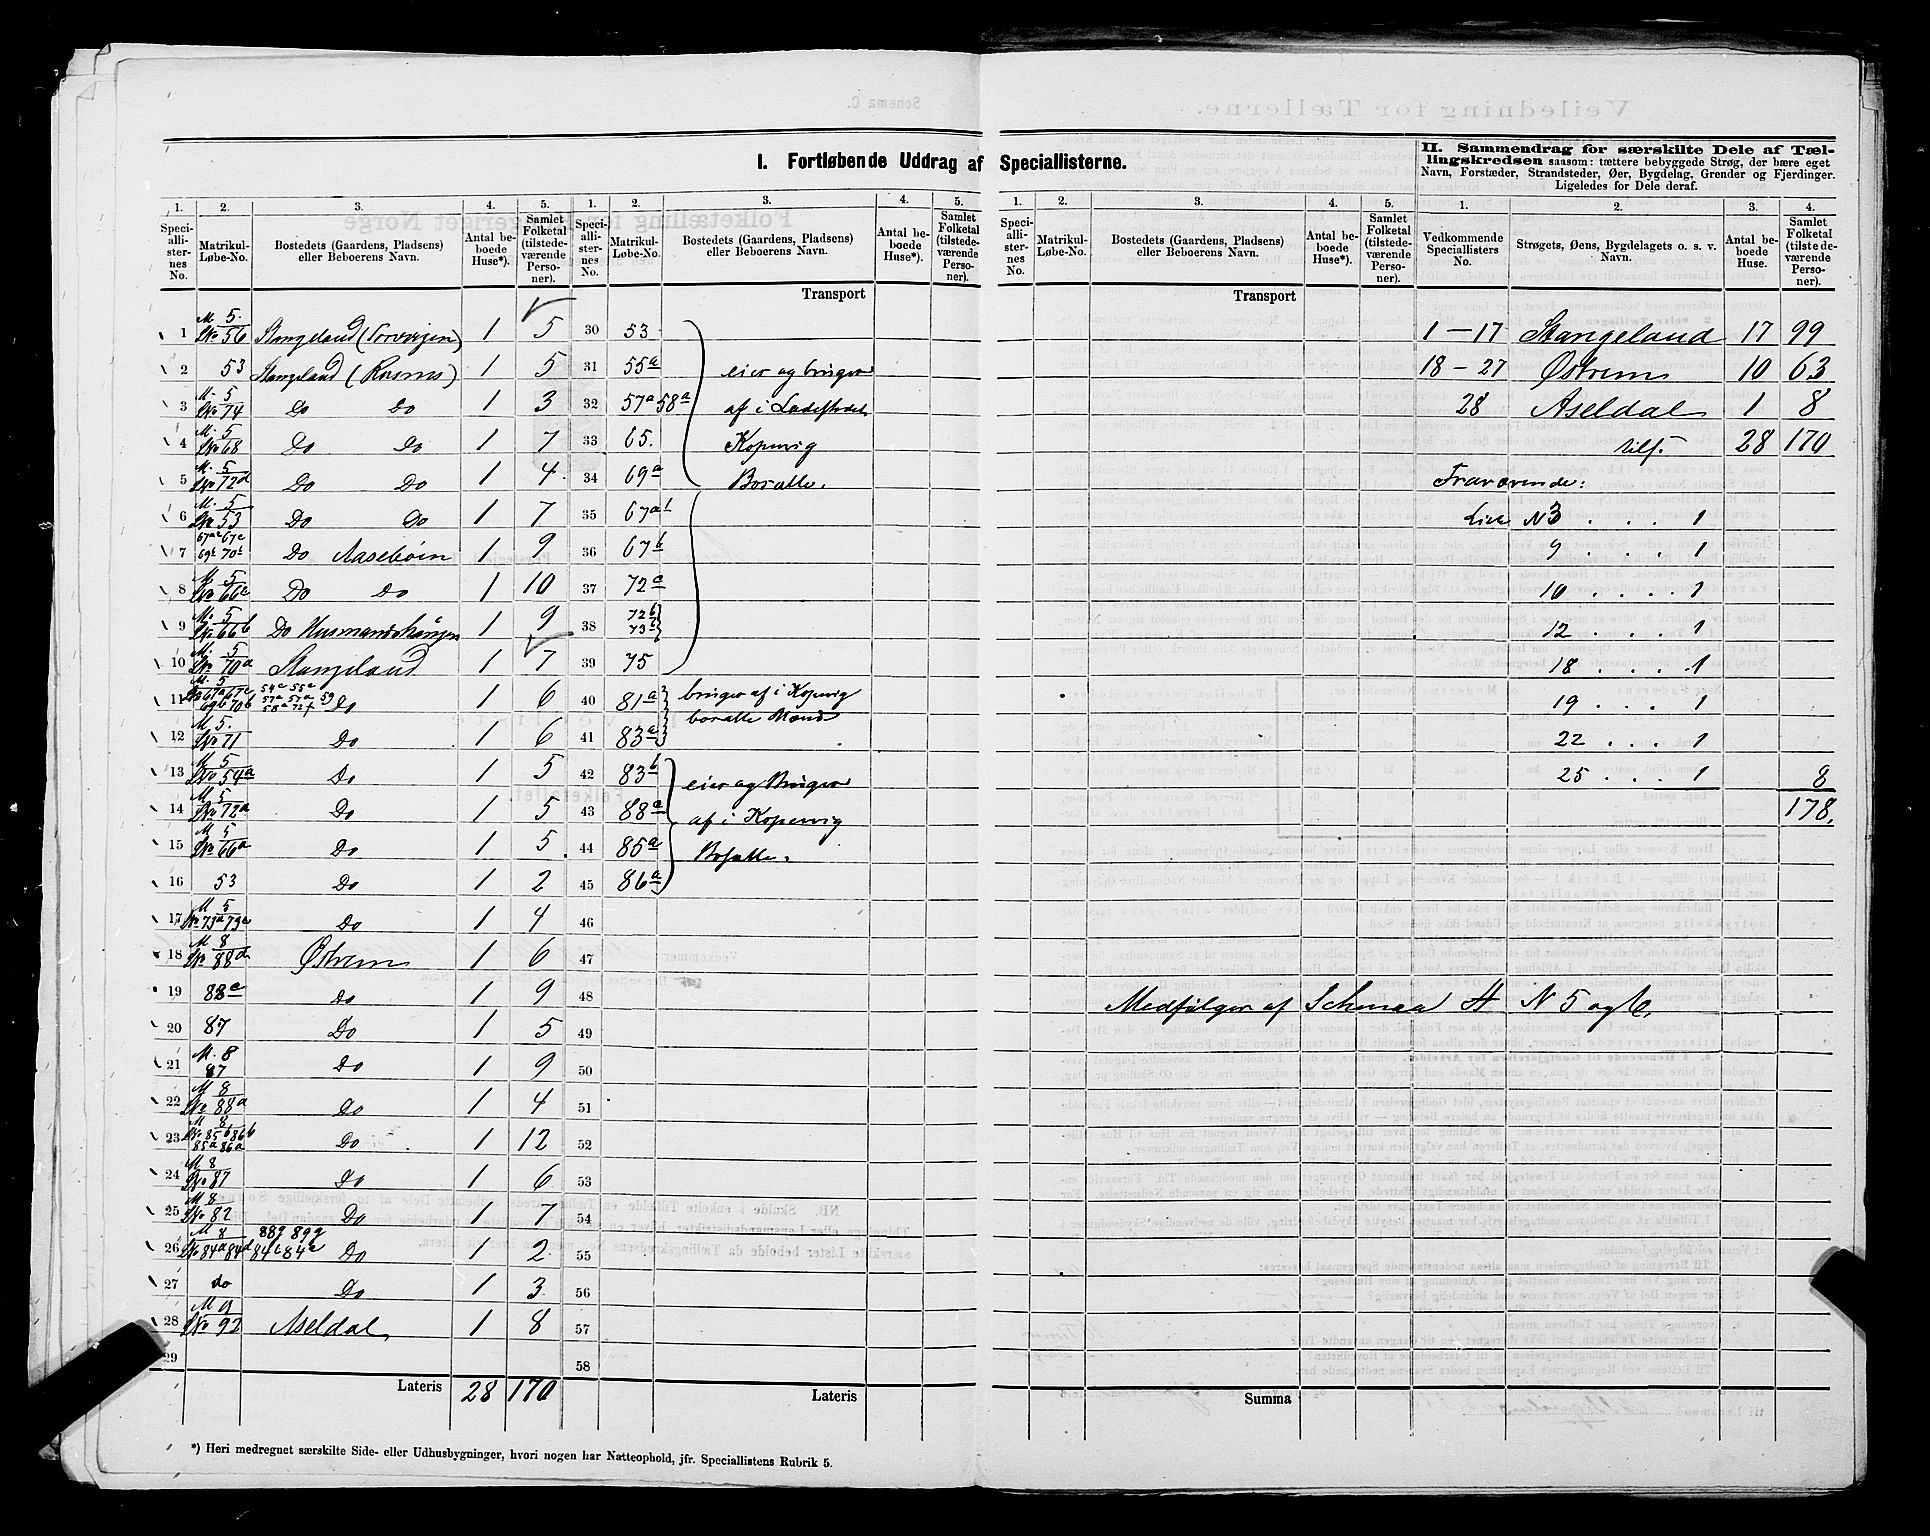 I. Fortløbende Uddrag af Speciallisterne.
II. Sammendrag for særskilte Dele af Tæl-
lingskredsen saasom: tættere bebyggede Strøg, der bære eget
Navn, Forstæder, Strandsteder, Øer, Bygdelag, Grender og Fjerdinger.
Ligeledes for Dele deraf.
1. 2. 3. 4. 5. 1. 2. 3. 4. 5. 1. 2. 3. 4. 5. 1. 2. 3. 4.
Speciallisternes No. Matrikul-Løbe-No. Bostedets (Gaardens, Pladsens) eller Beboerens Navn. Antal beboede Huse*). Samlet Folketal (tilstedeværende Personer).
Speciallisternes No. Matrikul-Løbe-No. Bostedets (Gaardens, Pladsens) eller Beboerens Navn. Antal beboede Huse*). Samlet Folketal (tilstedeværende Personer).
Speciallisternes No. Matrikul-Løbe-No. Bostedets (Gaardens, Pladsens) eller Beboerens Navn. Antal beboede Huse*). Samlet Folketal (tilstedeværende Personer).
Vedkommende Speciallisters No. Strøgets, Øens, Bygdelagets o. s. v. Navn. Antal beboede Huse. Samlet Folketal (tilstedeværende Personer).
Transport
Transport
1 M 5. LNo 56 Stangeland 1 5
2 53 Stangeland 1 5
3 M. 5 LNo 74 Do Do 1 3
4 M. 5 LNo 68 Do Do 1 7
5 M. 5 LNo 72d Do Do 1 4
6 M. 5 LNo 53 Do Do 1 7
7 Do Aasebøin 1 9
8 M. 5 Do Do 1 10
9 M. 5 LNo 66b Do 1 9
10 M. 5 LNo 70a Stangeland 1 7
11 M. 5 Do 1 6
12 M 5. LNo 71 Do 1 6
13 M 5 LNo 54a Do 1 5
14 M 5 LNo 72a Do 1 5
15 M 5 LNo 66a Do 1 5
16 53 Do 1 2
17 M 5 Do 1 4
18 M 8 LNo 88d Østrem 1 6
19 Do 1 9
20 87 Do 1 5
21 M. 8 87 Do 1 9
22 M 8 LNo 88a Do 1 4
23 M 8 LNo 85b 86b 85a 86a Do 1 12
24 M 8 LNo 87 Do 1 6
25 M 8 LNo 82 Do 1 7
26 M 8 Do 1 2
27 do Do 1 3
28 LNo 92 Aseldal 1 8
29
Lateris 28 170
30 53
31 55a eier og bruges
32 57a 58a af i Ladestedet
33 65. Kopervig
34 69a Bosatte.
35
36 67b
37
38 72b 73b
39 75
40 81a bruges af i Kopervig
41 83a bosatte Mænd
42 83b eier og Bruges
43 88a af i Kopervig
44 85a Bosatte.
45 86a
46
47
48
49
50
51
52
53
54
55
56
57
58
Lateris
Medfølger af Schema N 5 og 6.
Summa
1 — 17 Stangeland 17 99
18 — 27 Østrem 10 63
28 Aseldal 1 8
tils. 28 170
Fraværende:
Liste N 3 . . . 1
9 . . . 1
10 . . . . 1
12 . . . 1
18 . . . 1
19 . . . 1
22 . . . 1
25 . . . 1 8
178.
*) Heri medregnet særskilte Side- eller Udhusbygninger, hvori nogen har Natteophold, jfr. Speciallistens Rubrik 5.